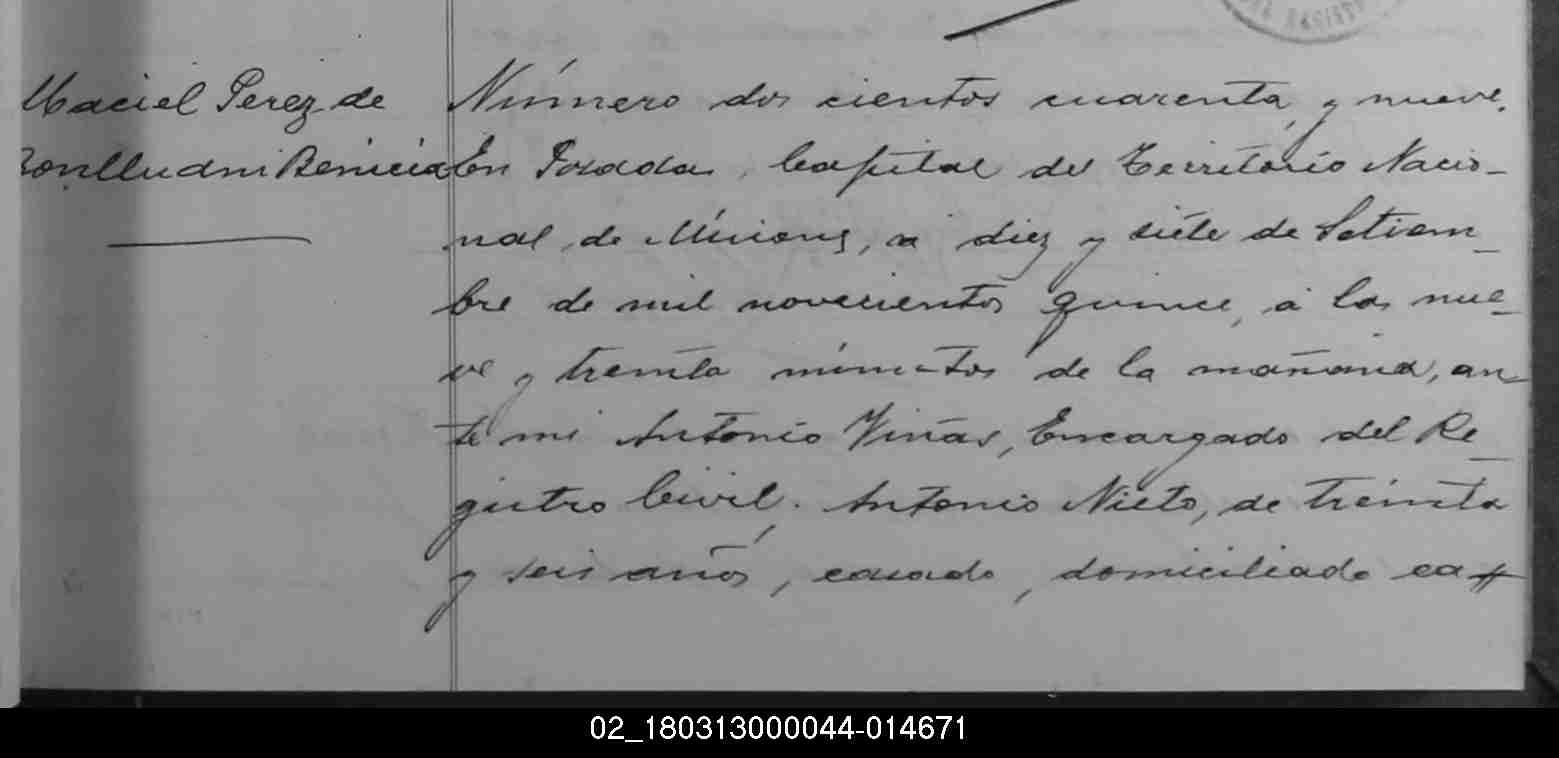 Maciel Perez de
Benicia
Número dos cientos cuarenta y nueve.
En Posadas, Capital del Territorio Nacio-
nal de Misiones, a diez y siete de Setiem-
bre de mil novecientos quince, a las nue-
ve y treinta minutos de la mañana, an-
te mi Antonio Viñas, Encargado del Re-
gistro Civil. Antonio Nieto, de treinta
y seis años, casado, domiciliado ca
02_180313000044-014671